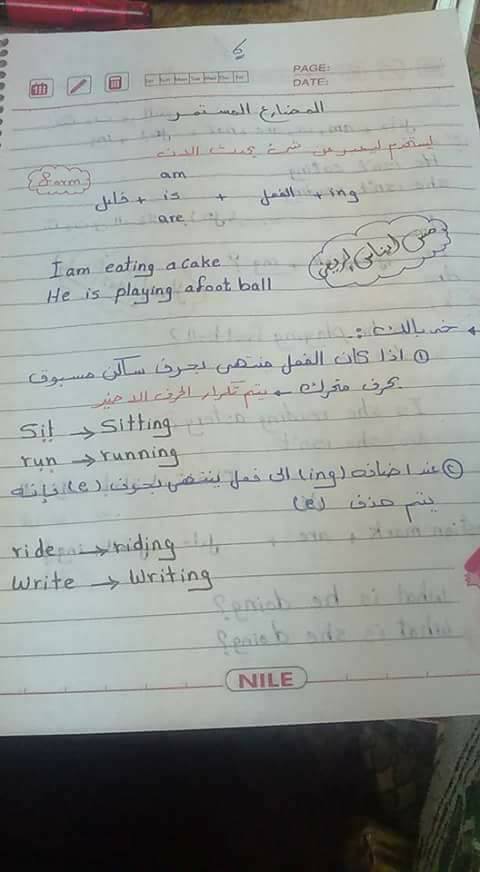 ى
PAGE:
DATE:
المضارع المستمر
يستخدم ليعبر عن شئ يحدث الان
Form
am
فاعل + is + الفعل + ing
are
I am eating a cake
He is playing a foot ball
خد بالك :
① اذا كان الفعل منتهى بحرف ساكن مسبوق
بحرف متحرك يتم تكرار الحرف الاخير
Sit → Sitting
run → running
② عند اضافه (ing) الى فعل ينتهى بحرف (e) فإنه
يتم حذف (e)
ride → riding
write → writing
NILE